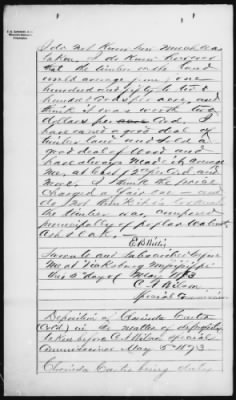 I do not know how much was
taken. I do know however
that the timber on the land
would average from one
hundred and fifty to two
hundred cords per acre, and
think it was worth two
dollars per cord. I
have owned a good deal of
timber land and sold a
good deal of wood and
have always made it average
me at least $2 per cord and
more. I think the price
charged a fair one and
do not think it is too much
the timber was composed
principally of poplar walnut
ash & oak.
E B Willis
Sworn to and subscribed before
me at Vicksburg Mississippi
this 2 day of May 1873
C. A. Wilson
Special Commissioner
Deposition of Clarinda Curtis
(Cold.) in the matter of
taken before C A Wilson special
Commissioner May 5 1873
Clarinda Curtis being duly